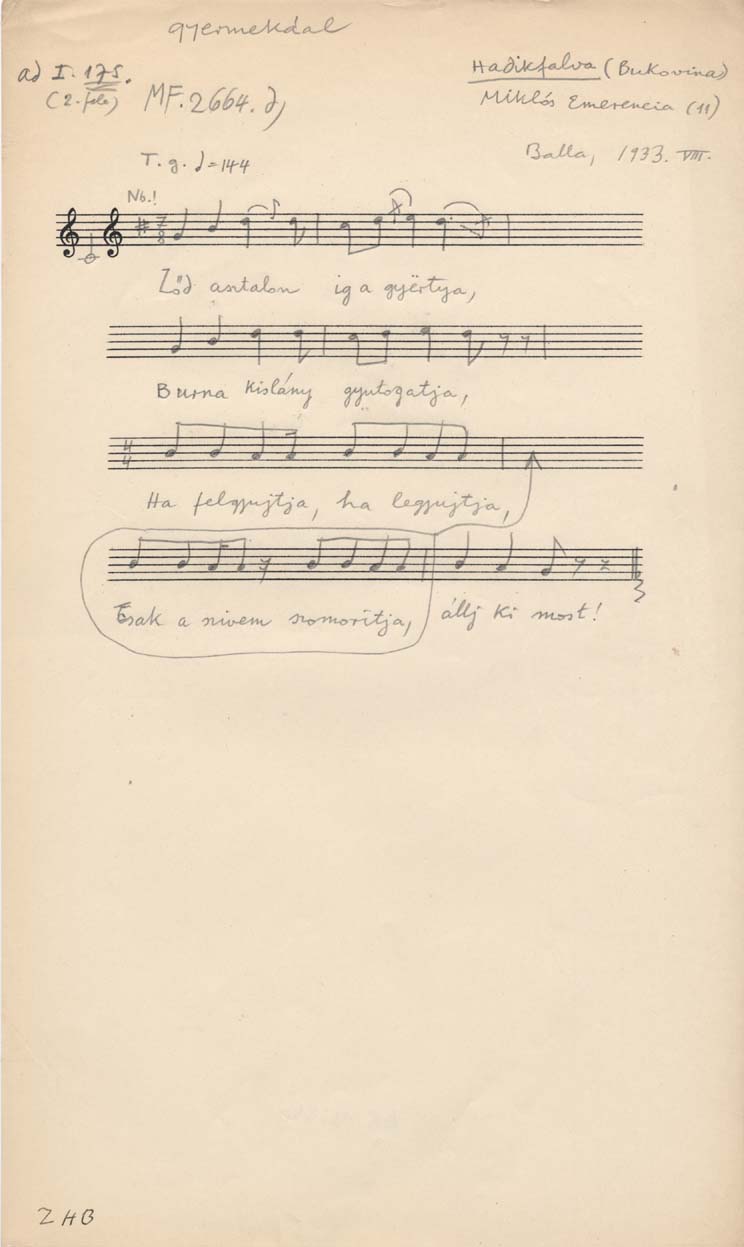 gyermekdal
ad I. 175.
(2. fele)
MF. 2664. d)
Hadikfalva (Bukovina)
Miklós Emerencia (11)
Balla, 1933. VIII.
T. g. ♩=144
Nb.!
7/8
Ződ asztalon ig a gyërtya,
Burna kislány gyutogatja,
4/4
Ha felgyujtja, ha legyujtja,
Csak a szivem szomorítja, állj ki most!
ZHB